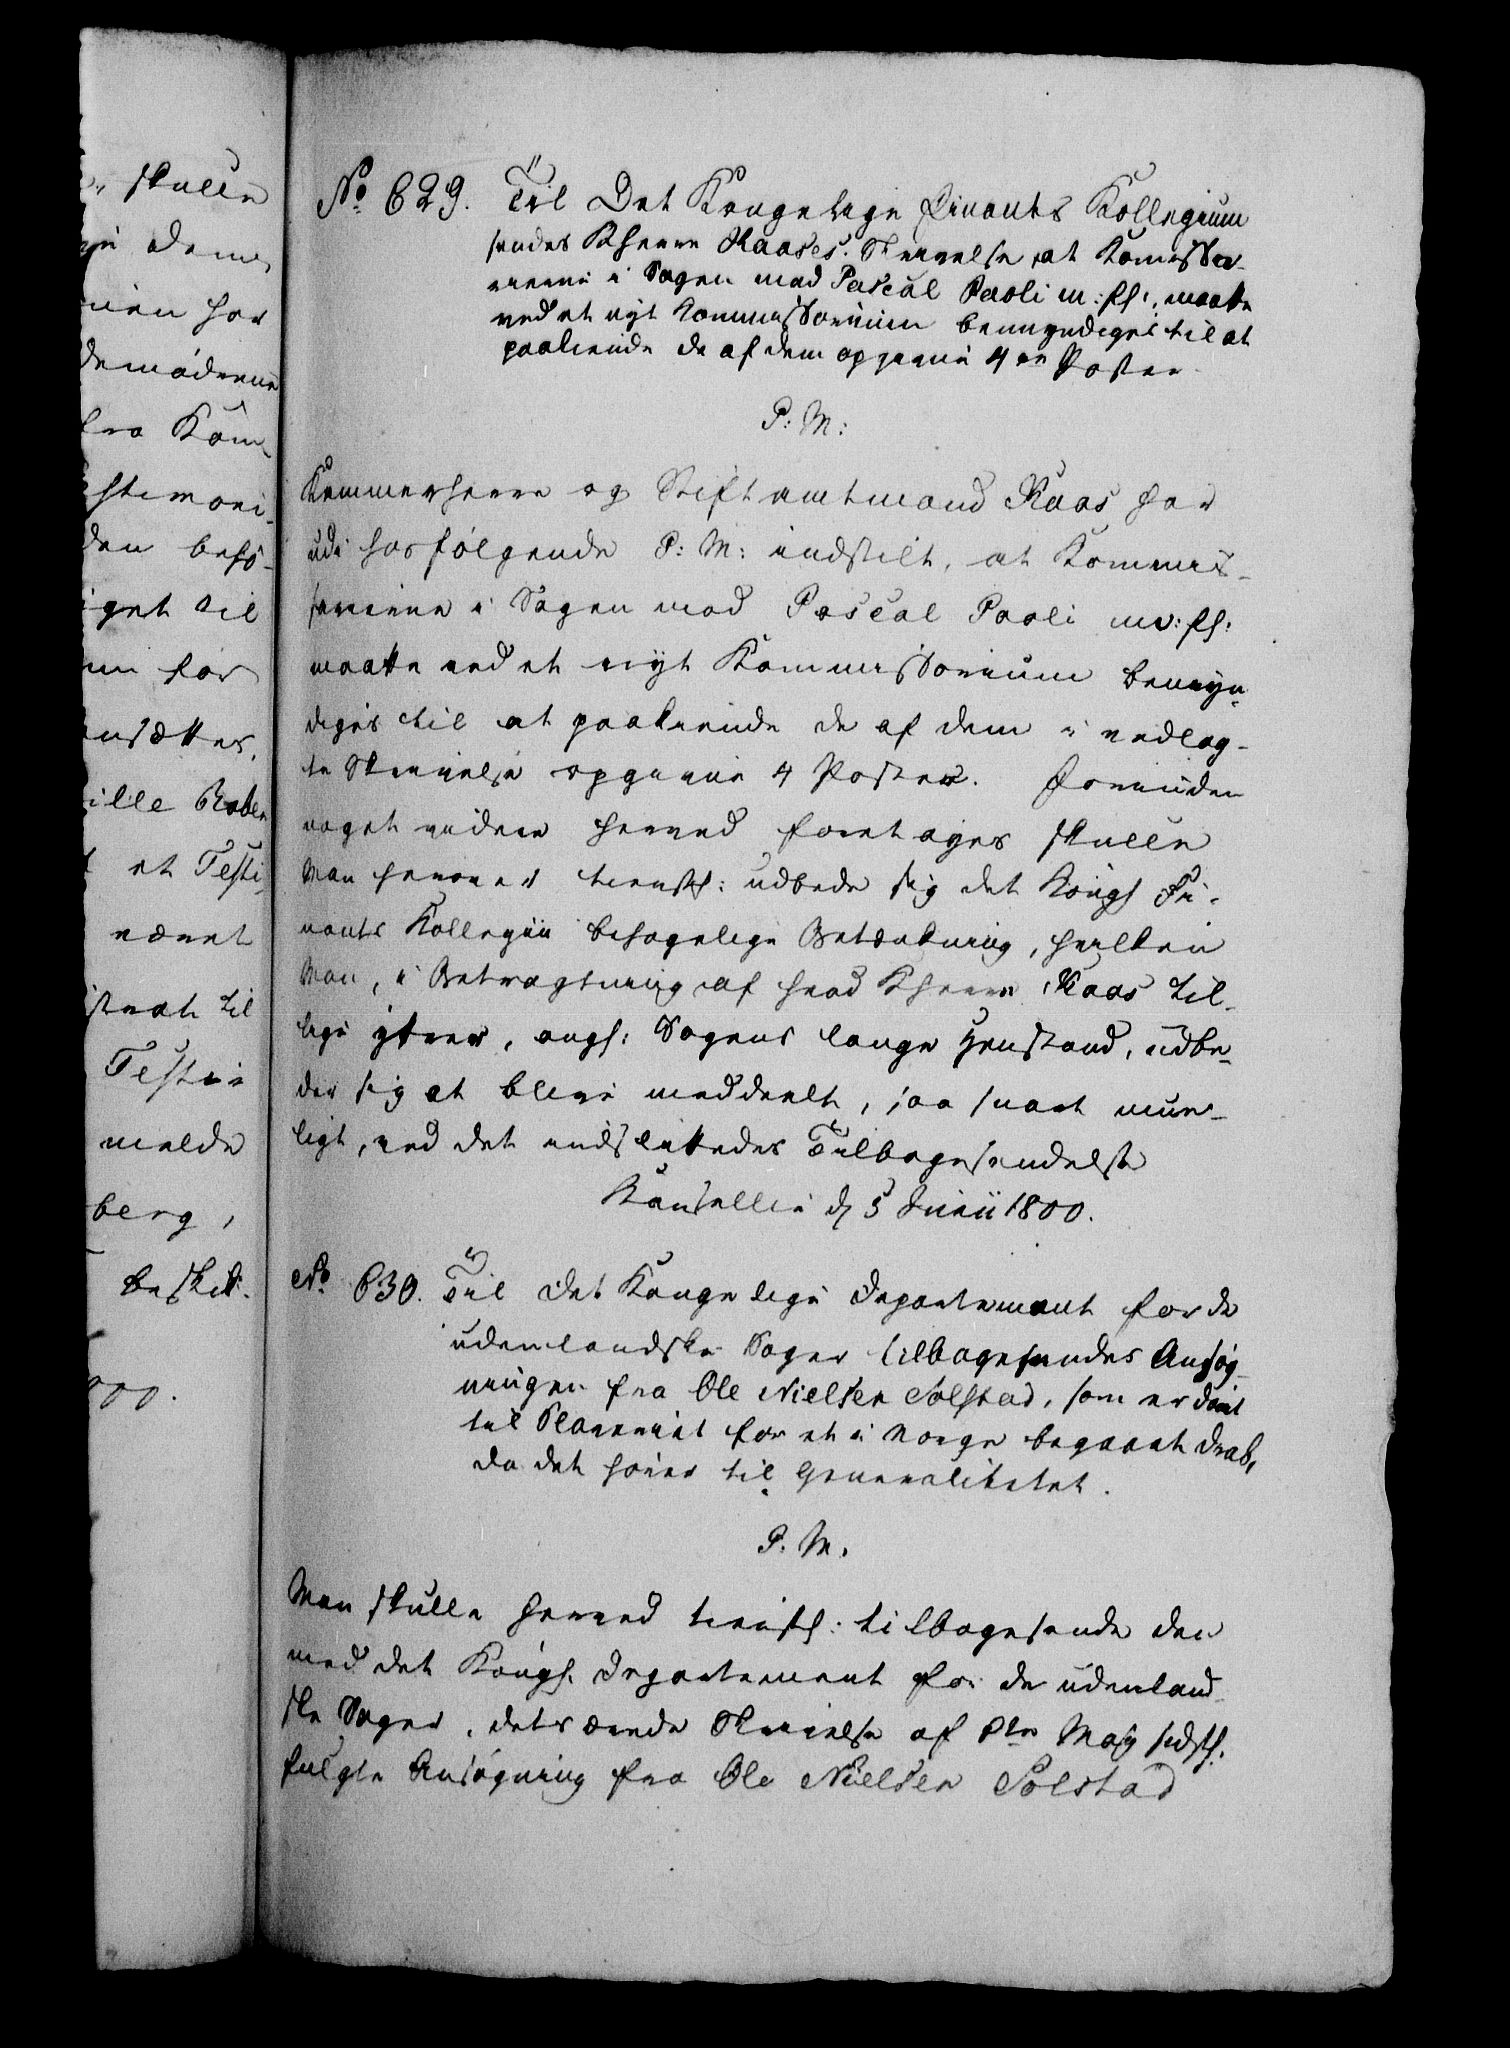 skulle
dem
men har
demøderne
fra Kom-
den behø-
iget til
for
nsættes,
ille Raben
et Testi-
nævnt
til
Testi
melde
berg,
beskik-
No 629. Til Det Kongelige Finants Kollegium
sendes Kherre Kaases Skrivelse, at Komissa-
rierne i Sagen mod Pascal Paoli m: fl:, maatte
ved et nyt Kommissorium bemyndiges til at
paakiende de af dem opgivne 4re Poster.
P: M:
Kammerherre og Stiftamtmand Kaas har
udi hosfølgende P: M: indstilt, at Kommis-
sarierne i Sagen mod Pascal Paoli m: fl:
maatte ved et nyt Kommissorium bemyn-
diges til at paakiende de af dem i vedlag-
te Skrivelse opgivne 4 Poster. Forinden
noget videre herved foretages skulle
Man herover tienstl: udbede sig det Kongl Fi-
nants Kollegii behagelige Betænkning, hvilken
Man, i Betragtning af hvad Kherre Kaas til-
lige ytrer, angl: Sagens lange Henstand, udbe-
der sig at blive meddeelt, saa snart mue-
ligt, ved det indsluttedes Tilbagesendelse
Kanselliet d 5 Junii 1800.
No 630. Til det Kongelige Departement for de
udenlandske Sager tilbagesendes Ansøg-
ningen fra Ole Nielsen Solstad, som er dømt
til Slaveriet for et i Norge begaaet Drab,
da det hører til Generalitetet.
P. M.
Man skulle herved tienstl: tilbagesende den
med det Kongl. Departement for de udenland-
ske Sager, dets ærede Skrivelse af May sidstl.
fulgte Ansøgning fra Ole Nielsen Solstad